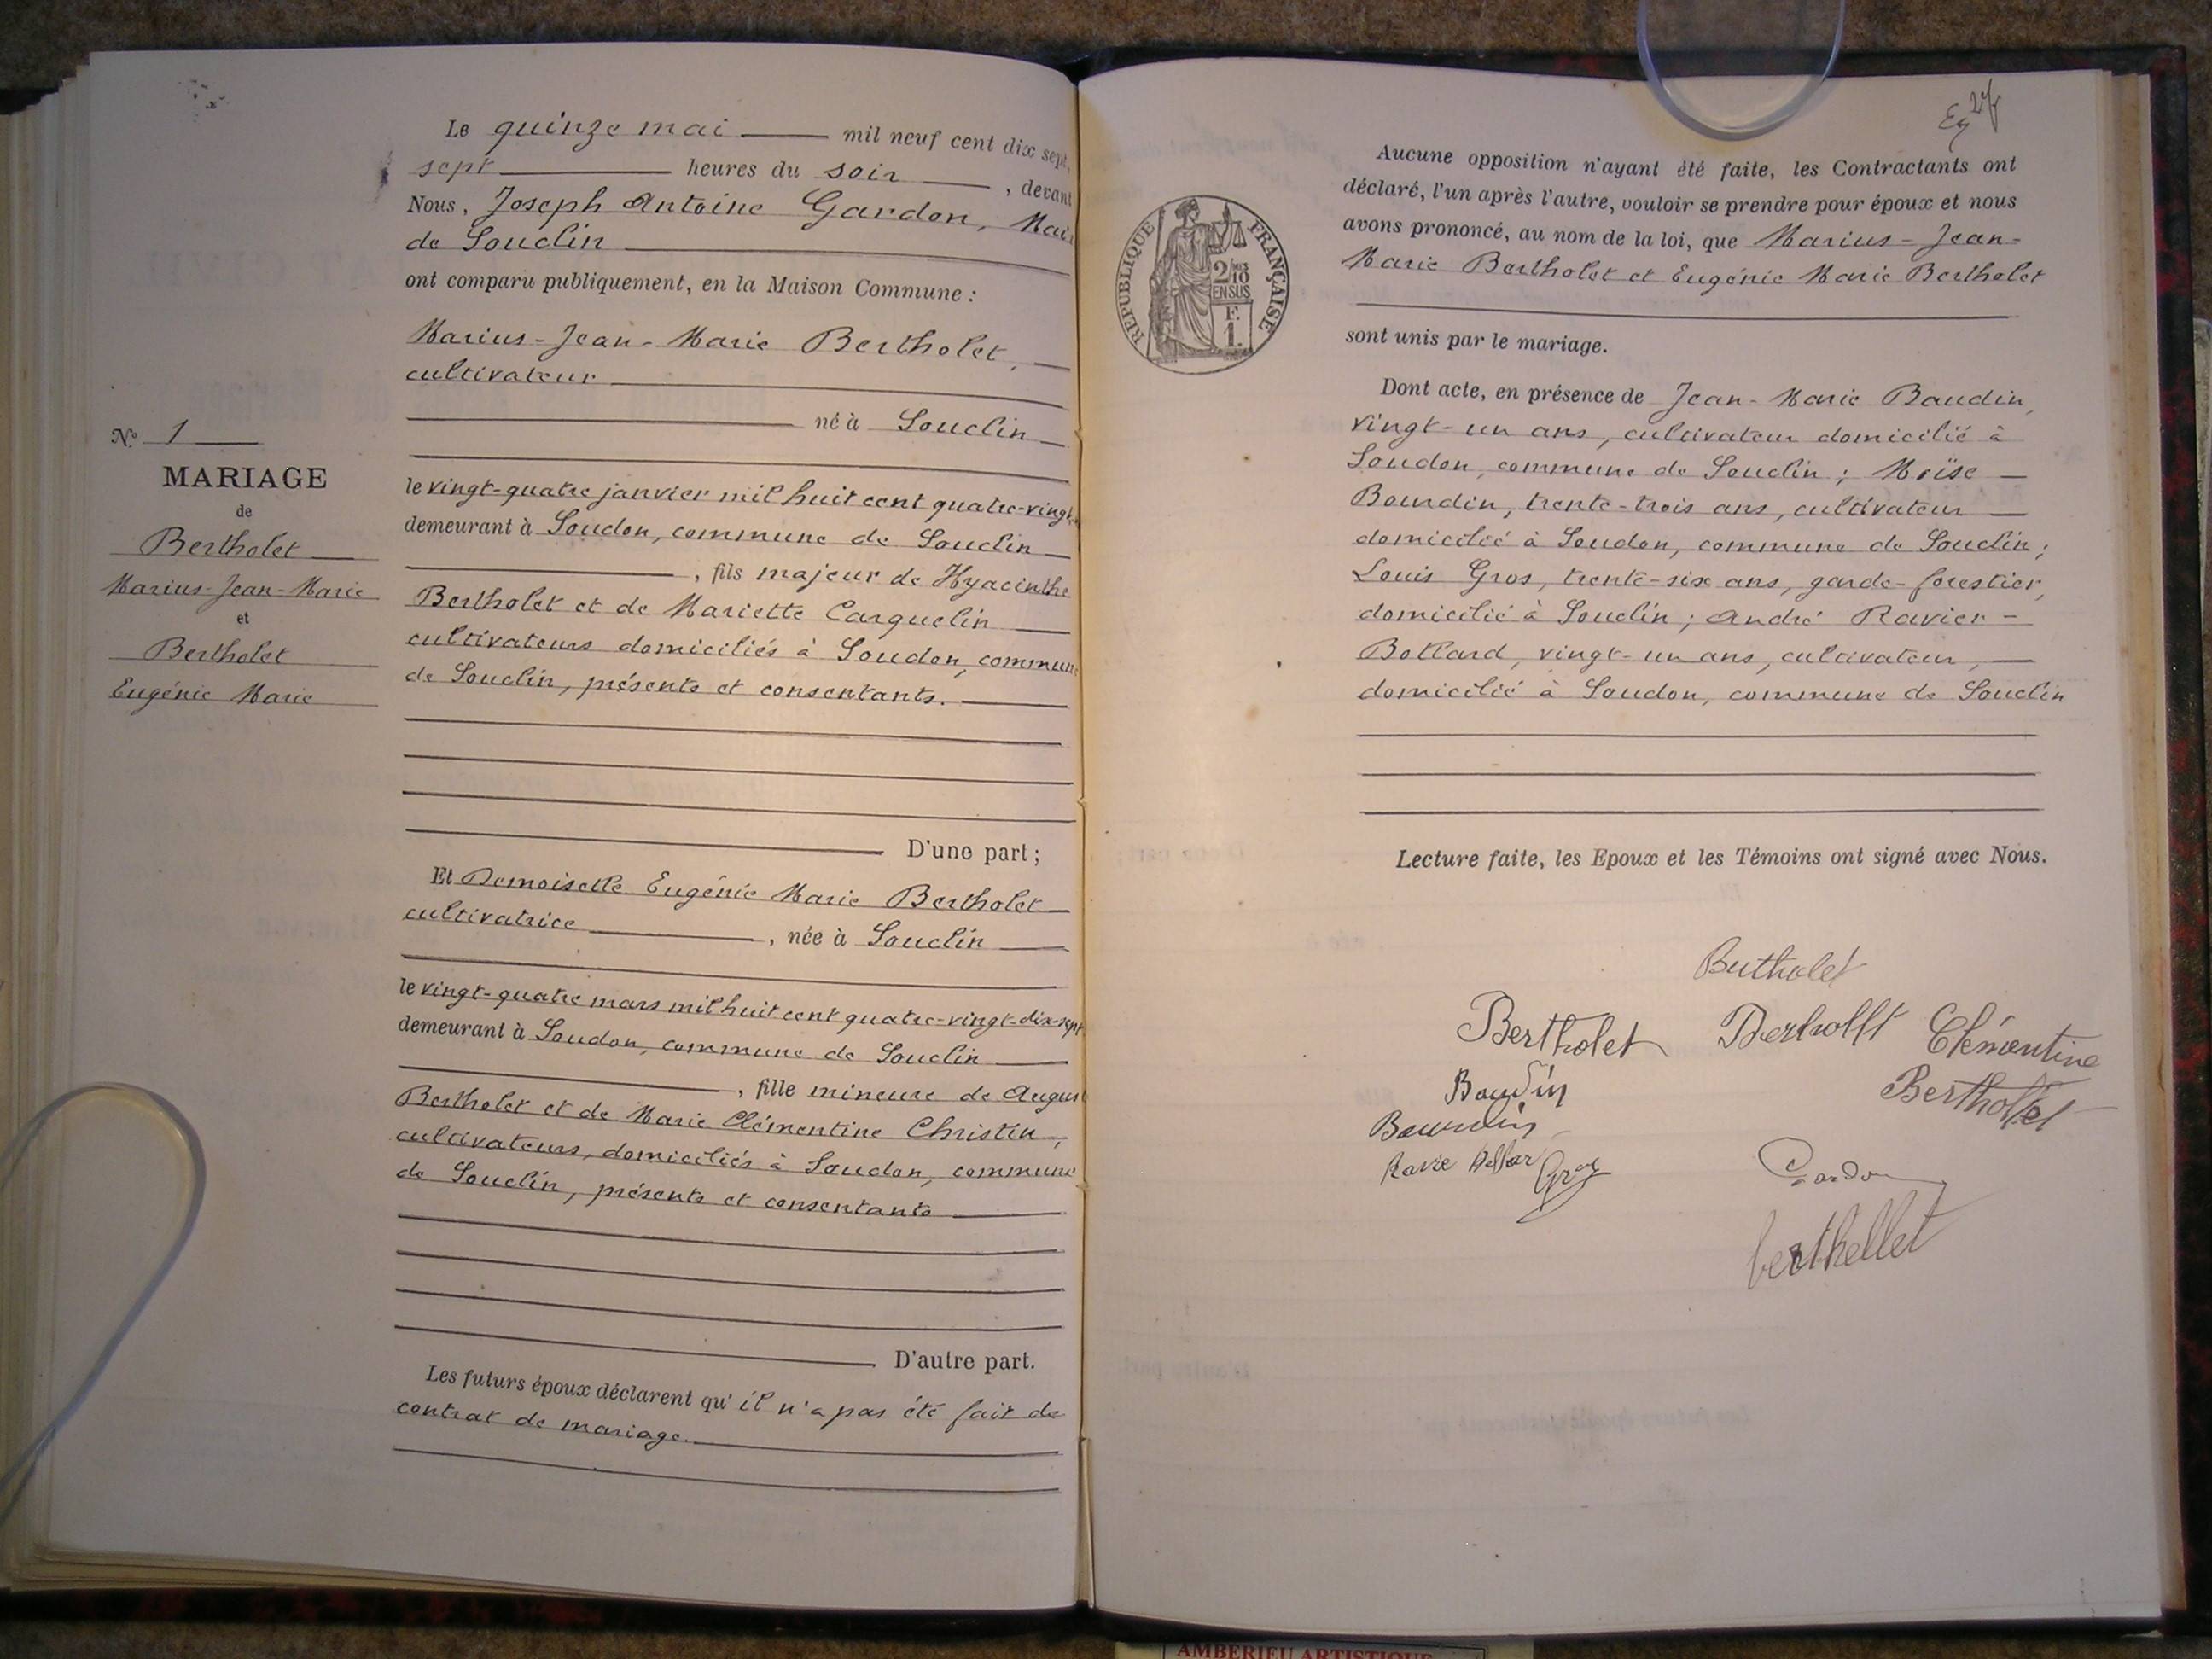 Le quinze mai mil neuf cent dix sept,
sept heures du soir, devant
Nous, Joseph Antoine Gardon, Mai
de Souclin
ont comparu publiquement, en la Maison Commune :
Marius-Jean-Marie Bertholet,
cultivateur
né à Souclin
le vingt-quatre janvier mil huit cent quatre-vingt
demeurant à Soudon, commune de Souclin
, fils majeur de Hyacinthe
Bertholet et de Mariette Carquelin
cultivateurs domiciliés à Soudon, commune
de Souclin, présents et consentants.
D'une part ;
Et Demoiselle Eugénie Marie Bertholet
cultivatrice, née à Souclin
le vingt-quatre mars mil huit cent quatre-vingt-dix-sept
demeurant à Soudon, commune de Souclin
, fille mineure de August
Bertholet et de Marie Clémentine Christin,
cultivateurs, domiciliés à Soudon, commune
de Souclin, présents et consentants
D'autre part.
Les futurs époux déclarent qu'il n'a pas été fait de
contrat de mariage.
N° 1
MARIAGE
de
Bertholet
Marius-Jean-Marie
et
Bertholet
Eugénie Marie
RÉPUBLIQUE FRANÇAISE
2/10
EN SUS
F.
1.
Aucune opposition n'ayant été faite, les Contractants ont
déclaré, l'un après l'autre, vouloir se prendre pour époux et nous
avons prononcé, au nom de la loi, que Marius-Jean-
Marie Bertholet et Eugénie Marie Bertholet
sont unis par le mariage.
Dont acte, en présence de Jean-Marie Baudin,
vingt-un ans, cultivateur domicilié à
Soudon, commune de Souclin ; Moïse
Bourdin, trente-trois ans, cultivateur
domicilié à Soudon, commune de Souclin ;
Louis Gros, trente-six ans, garde-forestier,
domicilié à Souclin ; André Ravier-
Bollard, vingt-un ans, cultivateur,
domicilié à Soudon, commune de Souclin
Lecture faite, les Epoux et les Témoins ont signé avec Nous.
Bertholet
Bertholet Clémentine
Baudin Bertholet
Bourdin
Gros Gardon
berthellet
AMBERIEU ARTISTIQUE